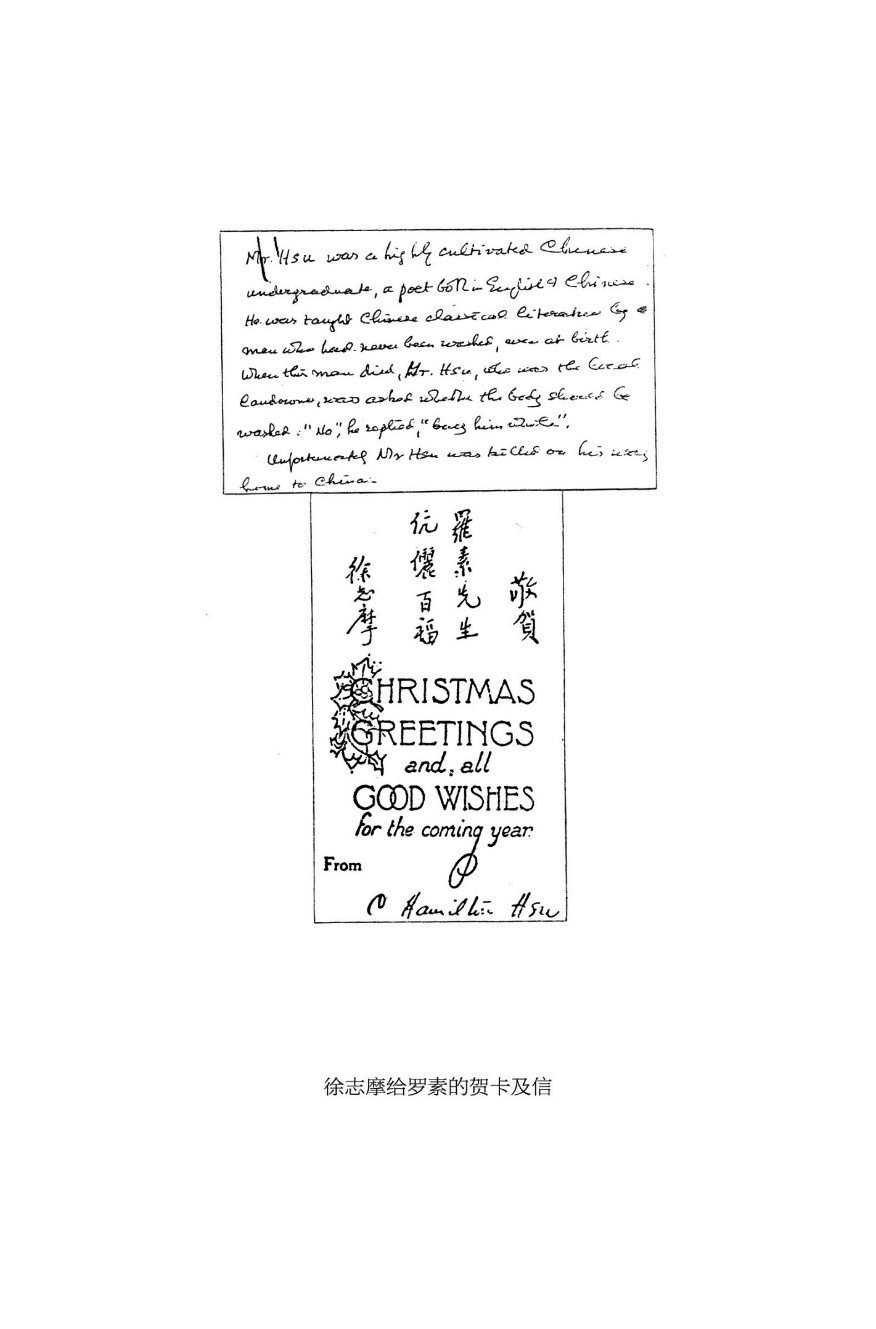 Mr. Hsu was a highly cultivated Chinese
undergraduate, a poet both in English & Chinese.
He was taught Chinese classical literature by a
man who had never been washed, even at birth.
When this man died, Mr. Hsu, who was the local
landowner, was asked whether the body should be
washed: "No", he replied, "bury him whole".
Unfortunately Mr Hsu was killed on his way
home to China.
敬賀
羅素先生
伉儷百福
徐志摩
CHRISTMAS
GREETINGS
and all
GOOD WISHES
for the coming year
From
C Hamilton Hsu
徐志摩给罗素的贺卡及信